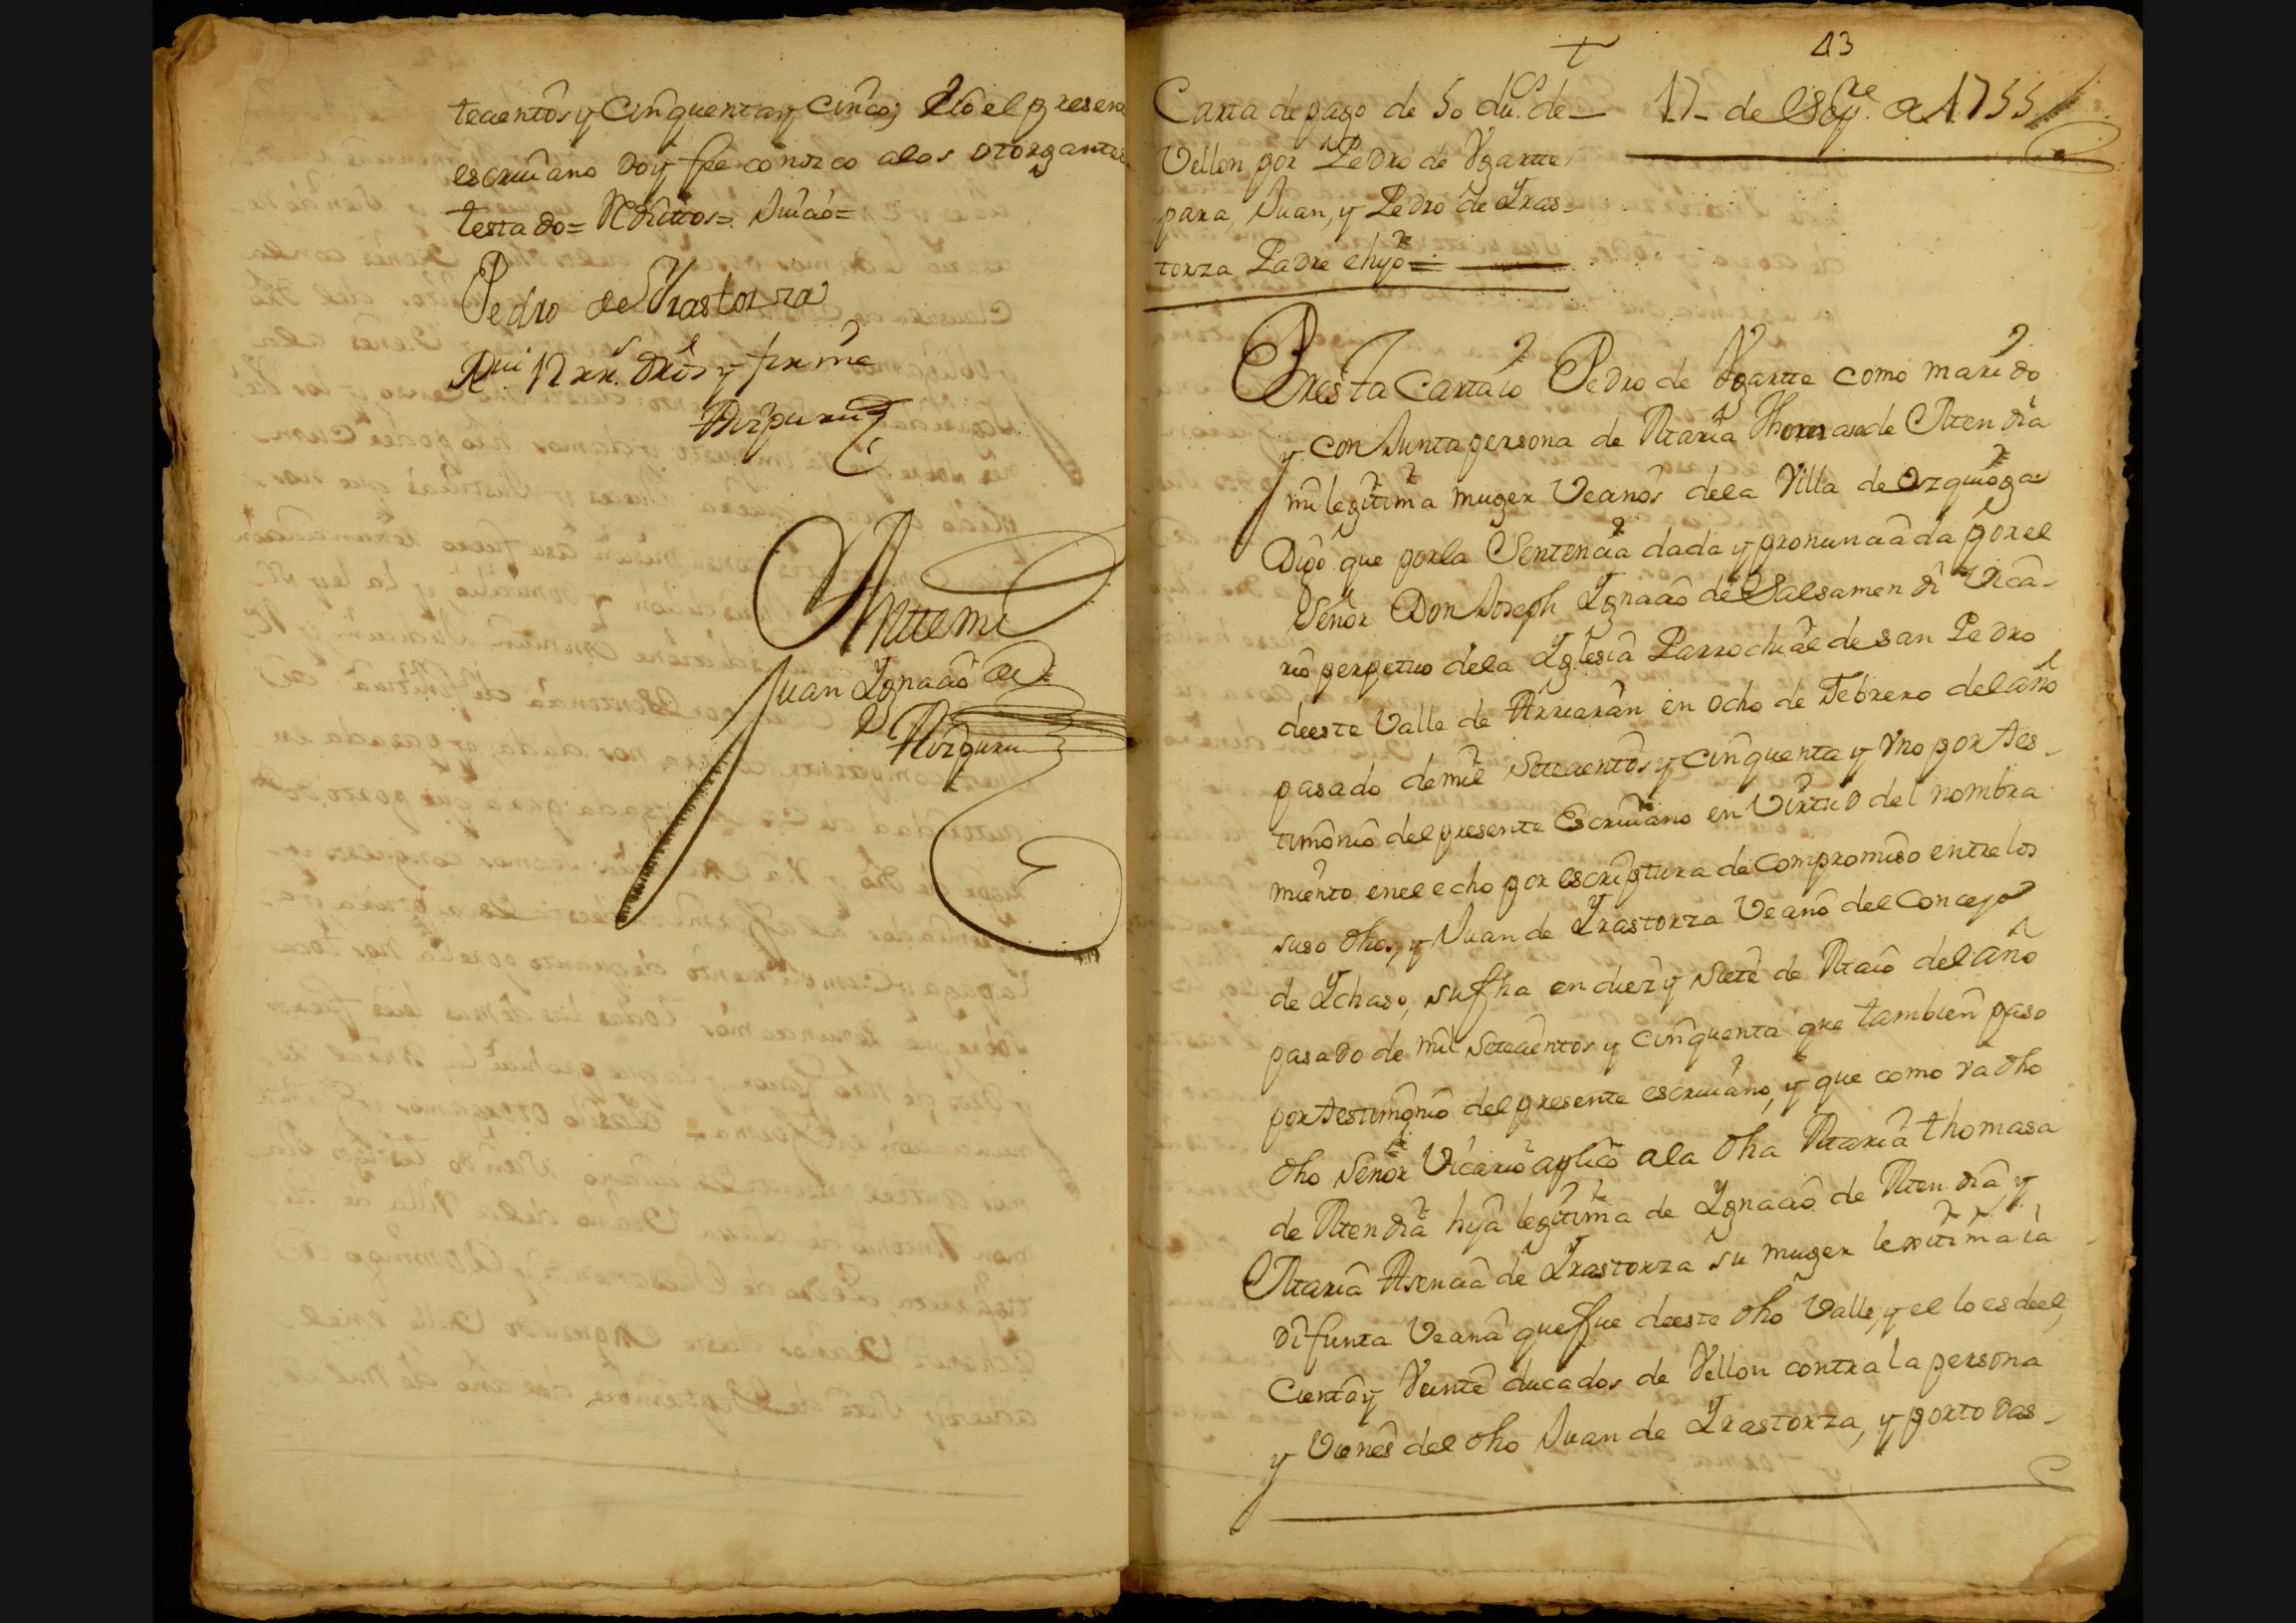 tecientos y Cinquenta y Cinco; Yo el presen
escriuano doy fee conozco a los otorgantes
testado=
Pedro de Yrastorza
y firme
Aizpuru
Antemi
Juan Ygnacio de
Aizpuru
43
Carta de pago de 50 du.os de
Vellon por Pedro de Vgarte
para, Juan, y Pedro de Yras-
torza Padre e hijo=
17 de Sep.re de 1755
Por esta Carta io Pedro de Vgartte como marido
y conJunta persona de Maria Thomasa de Mendia
mi legitima muger Vecinos dela Villa de Ezquioga
Digo que por la Sentencia dada y pronunciada por el
Señor Don Joseph Ygnacio de Balsamendi Vica-
rio perpetuo dela Yglesia Parrochial de san Pedro
de este Valle de Arriaran en ocho de Febrero del año
pasado de mil Setecientos y cinquenta y Vno por tes-
timonio del presente Escriuano en Virtud del nombra
miento en el echo por escriptura de Compromiso entre los
suso dhos, y Juan de Yrastorza Vecino del Concejo
de Ychaso, su fha en diez y Siete de Maio del año
pasado de mil Setecientos y cinquenta que tambien paso
por testimonio del presente escriuano, y que como va dho
dho Señor Vicario aplico a la dha Maria thomasa
de Mendia hija legitima de Ygnacio de Mendia, y
Maria Asencia de Yrastorza su muger lexitima ia
difunta Vecina que fue de este dho Valle, y el lo es de el,
Ciento y Veinte ducados de Vellon contra la persona
y Vienes del dho Juan de Yrastorza, y por todas-